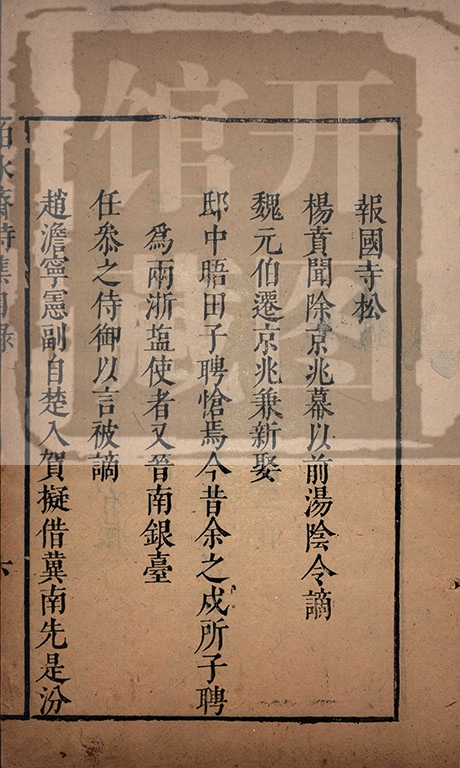 報國寺松
楊賁聞除京兆幕以前湯陰令謫
魏元伯遷京兆兼新娶
邸中晤田子聘愴焉今昔余之戍所子聘
為兩浙塩使者又晉南銀臺
任叅之侍御以言被謫
趙澹寧憲副自楚入賀擬借冀南先是汾
水齋詩集目錄
六